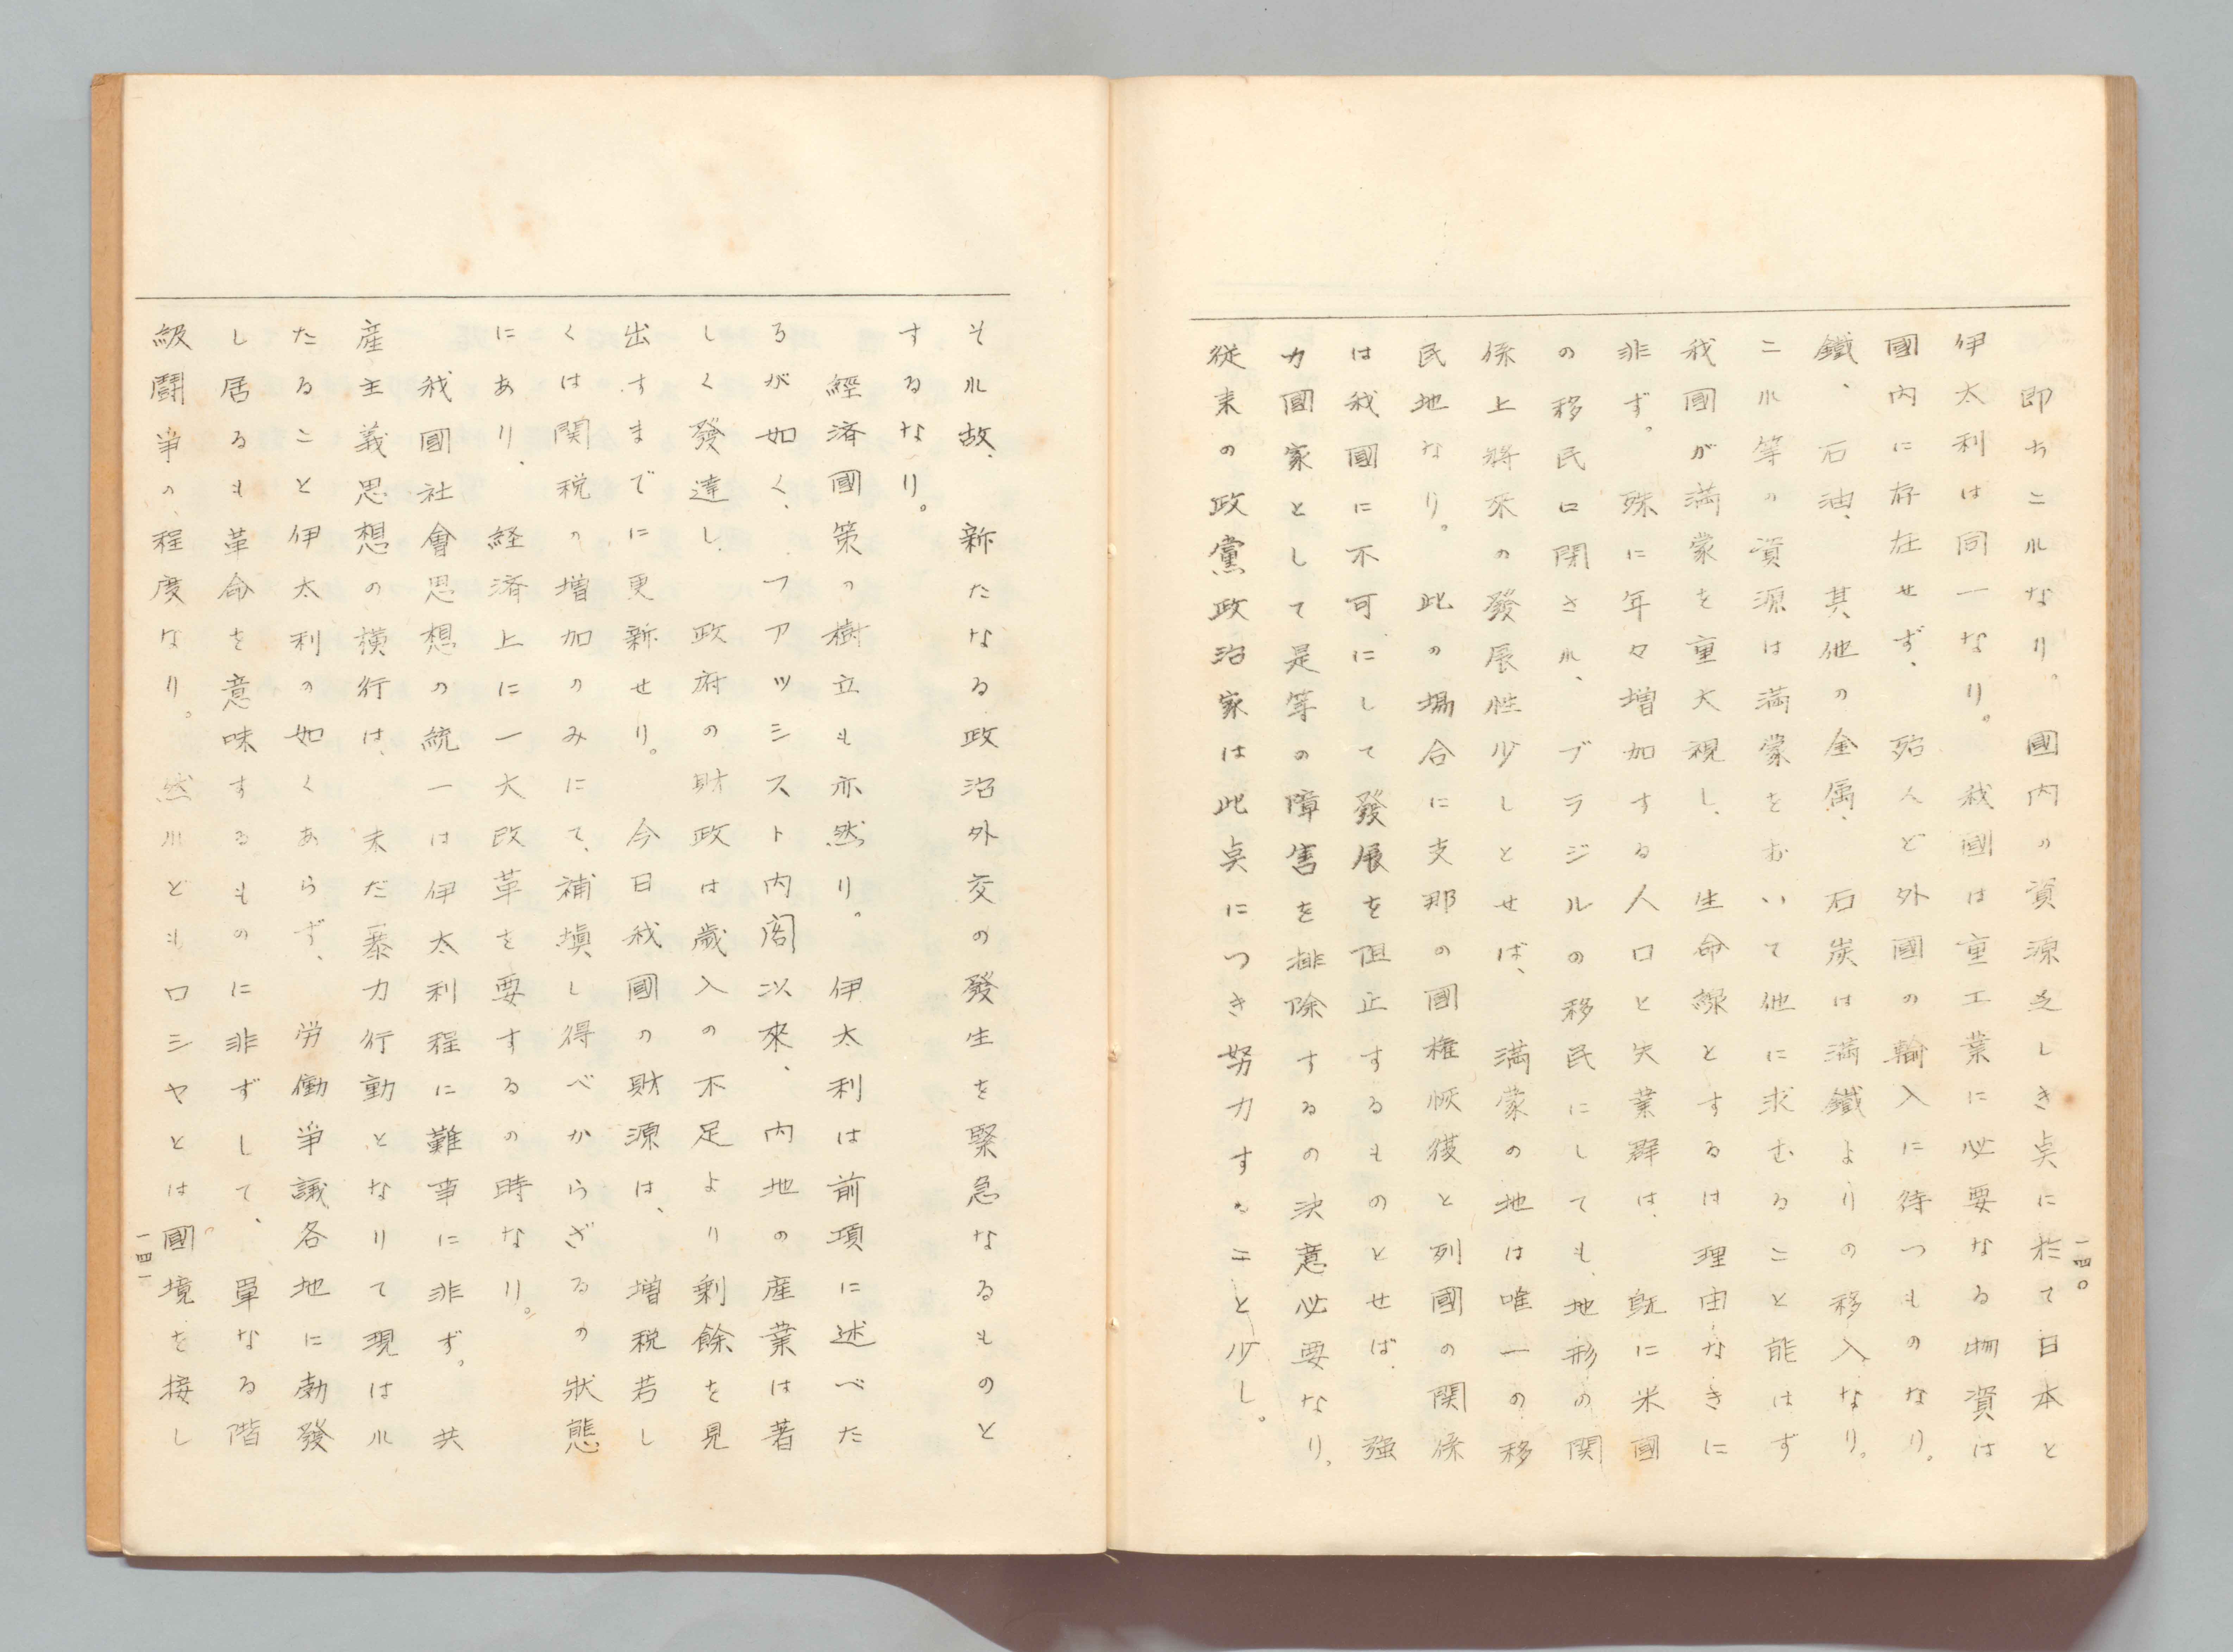 即ちこれなり。國内の資源乏しき点に於て日本と
伊太利は同一なり。我國は重工業に必要なる物資は
國内に存在せず、殆んど外國の輸入に待つものなり。
鐵、石油、其他の金属、石炭は満鐵よりの移入なり。
これ等の資源は満蒙をおいて他に求むること能はず
我國が満蒙を重大視し、生命線とするは理由なきに
非ず。殊に年々増加する人口と失業群は、既に米國
の移民口閉され、ブラジルの移民にしても、地形の関
係上將来の發展性少しとせば、満蒙の地は唯一の移
民地なり。此の場合に支那の國権恢復と列國の関係
は我國に不可にして發展を阻止するものとせば、強
力國家として是等の障害を排除するの決意必要なり。
従来の政黨政治家は此点につき努力すること少し。
一四〇
それ故、新たなる政治外交の發生を緊急なるものと
するなり。
經済國策の樹立も亦然り。伊太利は前項に述べた
るが如く、フアツシスト内閣以來、内地の産業は著
しく發達し、政府の財政は歳入の不足より剰餘を見
出すまでに更新せり。今日我國の財源は、増税若し
くは関税の増加のみにて、補塡し得べからざるの狀態
にあり、経済上に一大改革を要するの時なり。
我國社會思想の統一は伊太利程に難事に非ず。共
産主義思想の横行は、未だ暴力行動となりて現はれ
たること伊太利の如くあらず、労働争議各地に勃發
し居るも革命を意味するものに非ずして、單なる階
級闘争の程度なり。然れどもロシヤとは國境を接し
一四一